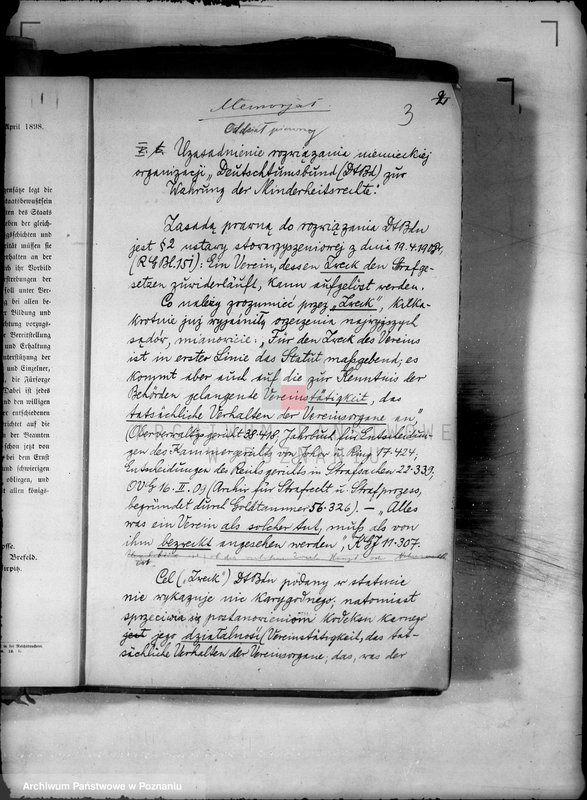 April 1898.
Memorjał.
3
Oddział pierwszy
Uzasadnienie rozwiązania niemieckiej
organizacji „Deutschtumsbund (DtBd) zur
Wahrung der Minderheitsrechte".
Zasadą prawną do rozwiązania DtBdu
jest § 2 ustawy stowarzyszeniowej z dnia 19.4.1908,
(RGBl. 151): Ein Verein, dessen Zweck den Strafge-
setzen zuwiderläuft, kann aufgelöst werden.
Co należy zrozumieć przez „Zweck", kilka-
krotnie już wyjaśniły orzeczenia najwyższych
sądów, mianowicie: „Für den Zweck des Vereins
ist in erster Linie das Statut maßgebend; es
kommt aber auch auf die zur Kenntnis der
Behörden gelangende Vereinstätigkeit, das
tatsächliche Verhalten der Vereinsorgane an"
(Oberverwaltgsgericht 38.418, Jahrbuch für Entscheidun-
gen des Kammergerichts von Johow u. Ring 17.424,
Entscheidungen des Reichsgerichts in Strafsachen 22.339,
OVG 16. II. 03 (Archiv für Strafrecht u. Strafprozess,
begründet durch Goltdammer 56.326). – „Alles
was ein Verein als solcher tut, muß als von
ihm bezweckt angesehen werden", KGJ 11.307.
Cel („Zweck") DtBdu podany w statucie
nie wykazuje nic karygodnego, natomiast
sprzeciwia się postanowieniom kodeksu karnego
jego działalność (Vereinstätigkeit, das tat-
sächliche Verhalten der Vereinsorgane, das, was der
genfätze legt die
ztaatsbewußtsein
ten des Staats
eben der gleich-
ch ihr Vorbild
foll unter Ver-
bei allen be-
r Bildung und
htung vorzugs-
e Bereitstellung
und Erhaltung
nterstützung der
und Einzelner,
t, die Fürsorge
Dabei ist jedes
nd den willigen
er entschiedenen
rrichtet auf die
n der Beamten
schon jetzt von
bei dem Ernst
und schwierigen
obliegen, und
it allen königs-
Brefeld.
irpitz.
n der Reichsdruckerei.
Archiwum Państwowe w Poznaniu